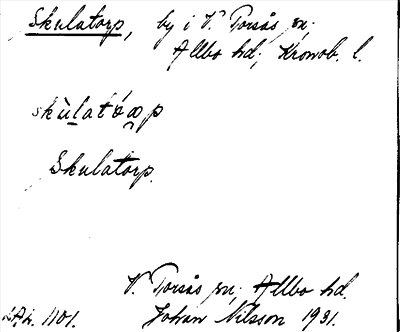 Skulatorp, by i V. Torsås sn;
Allbo hd; Kronob. l.
skùlatóap
Skulatorp.
V. Torsås sn; Allbo hd.
1101. Johan Nilsson 1931.